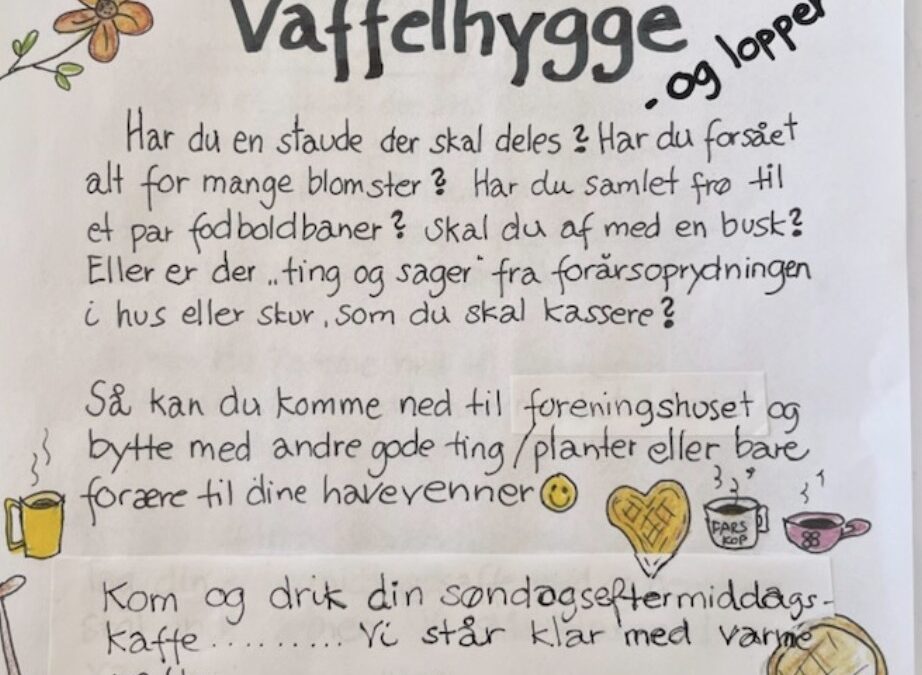 Vaffelhygge
- og lopper
Har du en staude der skal deles? Har du forsået
alt for mange blomster? Har du samlet frø til
et par fodboldbaner? Skal du af med en busk?
Eller er der „ting og sager" fra forårsoprydningen
i hus eller skur, som du skal kassere?
Så kan du komme ned til foreningshuset og
bytte med andre gode ting/planter eller bare
forære til dine havevenner
FARS
KOP
Kom og drik din søndagseftermiddags-
kaffe.......... Vi står klar med varme